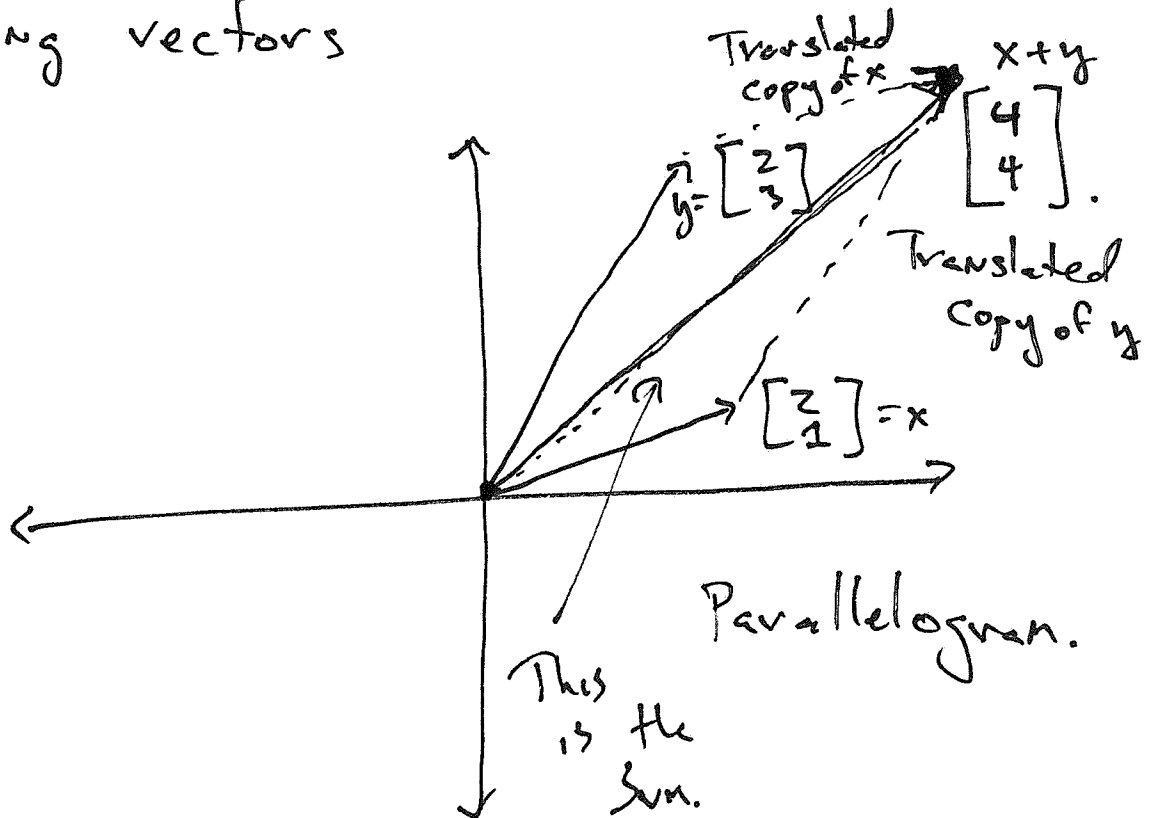 ng vectors
Translated
copy of x
x+y
[4
4].
y=[2
3]
Translated
Copy of y
[2
1]=x
Parallelogram.
This
is the
Sum.